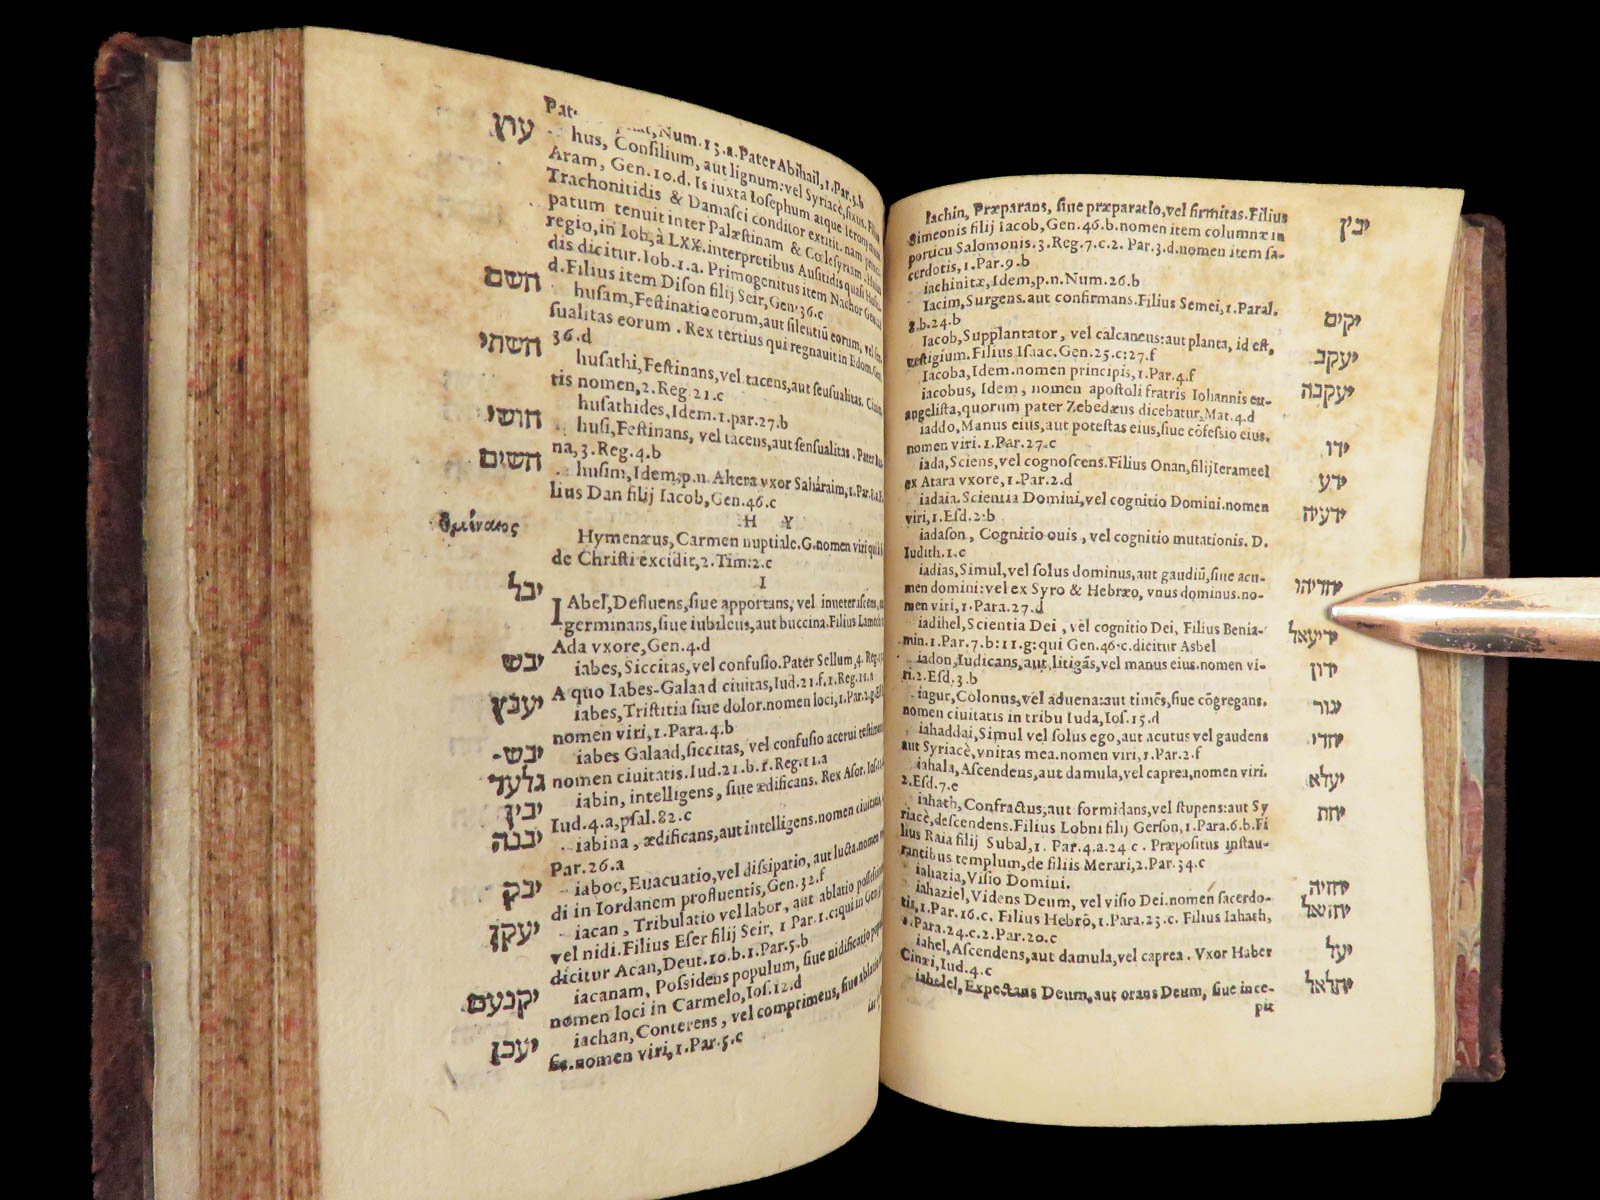 עוץ
Pat
Num.13.a.Pater Abihail,1.Par.3.b
hus, Consilium, aut lignum:vel Syriacè,fixus. Filius
Aram, Gen.10.d. Is iuxta Iosephum atque Ieronymum
Trachonitidis & Damasci conditor extitit. nam
patum tenuit inter Palæstinam & Cœlesyriam, Huius
regio,in Iob,à LXX.interpretibus Ausitidis quasi
dis dicitur.Iob.1.a. Primogenitus item Nachor Gen.22
d.Filius item Dison filij Seir,Gen.36.c
חשם
husam,Festinatio eorum,aut silentiū eorum, vel sen
sualitas eorum . Rex tertius qui regnauit in Edom.Gen.
36.d
חשתי
husathi,Festinans,vel tacens,aut sensualitas.
tis nomen,2.Reg.21.c
husathides,Idem.1.par.27.b
חושי
husi,Festinans, vel tacens,aut sensualitas . Pater
na,3.Reg.4.b
חשים
husim,Idem,p.n.Altera vxor Saharaim,1.Par.8.
lius Dan filij Iacob,Gen.46.c
H Y
ὑμέναιος
Hymenæus,Carmen nuptiale.G.nomen viri qui à
de Christi excidit,2.Tim.2.c
I
יבל
IAbel,Defluens,siue apportans, vel inueterascens,
germinans,siue iubileus,aut buccina.Filius Lamech
Ada vxore,Gen.4.d
יבש
iabes,Siccitas,vel confusio.Pater Sellum,4. Reg.15
A quo Iabes-Galaad ciuitas,Iud.21.f.1.Reg.11.a
יעבץ
iabes,Tristitia siue dolor.nomen loci,1.Par.2.g.Est
nomen viri,1.Para.4.b
יבש-
iabes Galaad,siccitas, vel confusio acerui testimonii
גלעד
nomen ciuitatis.Iud.21.b.1.Reg.11.a
יבין
iabin, intelligens, siue ædificans. Rex Asor. Iosue
Iud.4.a,psal.82.c
יבנה
iabina , ædificans,aut intelligens.nomen ciuitatis,
Par.26.a
יבק
iaboc,Euacuatio,vel dissipatio, aut lucta.nomen
di in Iordanem profluentis,Gen.32.f
יעקן
iacan , Tribulatio vel labor, aut ablatio possessionis
vel nidi.Filius Eser filij Seir, 1 Par.1.c:qui in Gen.
dicitur Acan,Deut.10.b.1.Par.5.b
יקנעם
iacanam, Possidens populum, siue nidificatio populi
nomen loci in Carmelo,Ios.12.d
יעכן
iachan,Conterens, vel comprimens, siue ablatio
nomen viri,1.Par.5.c
יכין
Iachin, Præparans, siue præparatio,vel firmitas.Filius
Simeonis filij Iacob,Gen.46.b.nomen item columnæ in
porticu Salomonis.3.Reg.7.c.2. Par.3.d.nomen item sa-
cerdotis,1.Par.9.b
iachinitæ,Idem,p.n.Num.26.b
יקים
Iacim,Surgens.aut confirmans.Filius Semei,1.Paral.
8.b.24.b
יעקב
Iacob,Supplantator, vel calcaneus:aut planta, id est,
vestigium.Filius Isaac.Gen.25.c:27.f
יעקבה
Iacoba,Idem.nomen principis,1.Par.4.f
iacobus, Idem, nomen apostoli fratris Iohannis eu-
angelistæ,quorum pater Zebedæus dicebatur,Mat.4.d
ידו
iaddo,Manus eius,aut potestas eius,siue cōfessio eius.
nomen viri.1.Par.27.c
ידע
iada,Sciens,vel cognoscens.Filius Onan,filij Ierameel
ex Atara vxore,1.Par.2.d
ידעיה
iadaia.Scientia Domini,vel cognitio Domini.nomen
viri,1.Esd.2.b
iadason, Cognitio ouis , vel cognitio mutationis. D.
Iudith.1.c
יחדיהו
iadias,Simul,vel solus dominus,aut gaudiū,siue acu-
men domini:vel ex Syro & Hebræo, vnus dominus.no-
men viri,1.Para.27.d
ידיעאל
iadihel,Scientia Dei , vel cognitio Dei, Filius Benia-
min.1.Par.7.b:11.g:qui Gen.46.c.dicitur Asbel
ידון
iadon,Iudicans,aut litigās,vel manus eius.nomen vi-
ri.2.Esd.3.b
יגור
iagur,Colonus,vel aduena:aut timēs,siue cōgregans.
nomen ciuitatis in tribu Iuda,Ios.15.d
יחדי
iahaddai,Simul vel solus ego,aut acutus vel gaudens
aut Syriacè,vnitas mea.nomen viri,1.Par.2.f
יעלא
iahala,Ascendens,aut damula,vel caprea,nomen viri.
2.Esd.7.e
יחת
iahath,Confractus,aut formidans,vel stupens:aut Sy
riacè,descendens.Filius Lobni filij Gerson,1.Para.6.b.Fi
lius Raia filij Subal,1. Par.4.a.24 c. Præpositus instau-
rantibus templum,de filiis Merari,2.Par.34.c
יחזיה
iahazia,Visio Domini.
יחזיאל
iahaziel,Videns Deum, vel visio Dei.nomen sacerdo-
tis,1.Par.16.c. Filius Hebrō,1.Para.23.c. Filius Iahath,
1.Para.24.c.2.Par.20.c
יעל
iahel,Ascendens,aut damula,vel caprea . Vxor Haber
Cinæi,Iud.4.c
יחלאל
iahelel,Expectans Deum,aut orans Deum, siue ince-
pit